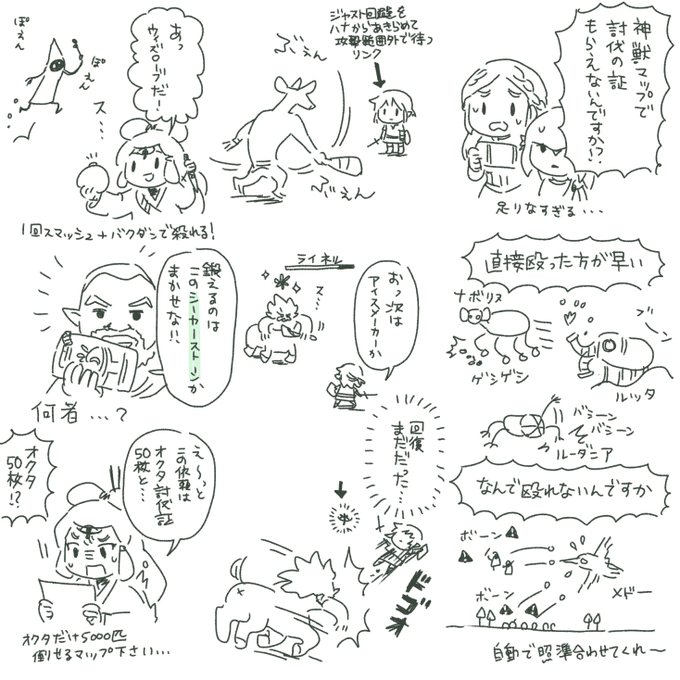 神獣マップで
討伐の証
もらえないんですかっ?、
足りなすぎる…
直接殴った方が早い
ナボリス
ゲシゲシ
ルッタ
バシーン
バシーン
ルーダニア
なんで殴れないんですか
ボーン
ボーン
メドー
自動で照準合わせてくれ〜
ジャスト回避を
ハナからあきらめて
攻撃範囲外で待つ
リンク
ぶえん
ぶえん
ライネル
ス…
おっ次は
アイスメーカーか
回復
まだだった…
ドゴォ
あっ
ウィズローブだー!
ぽえん
ぽえん
ス…
1回スマッシュ+バクダンで殺れる!
鍛えるのは
このシーカーストーンか
まかせな!!
何者…?
え〜っと
この依頼は
オクタ討伐証
50枚と…
オクタ
50枚!?
オクタだけ5000匹
倒せるマップ下さい…